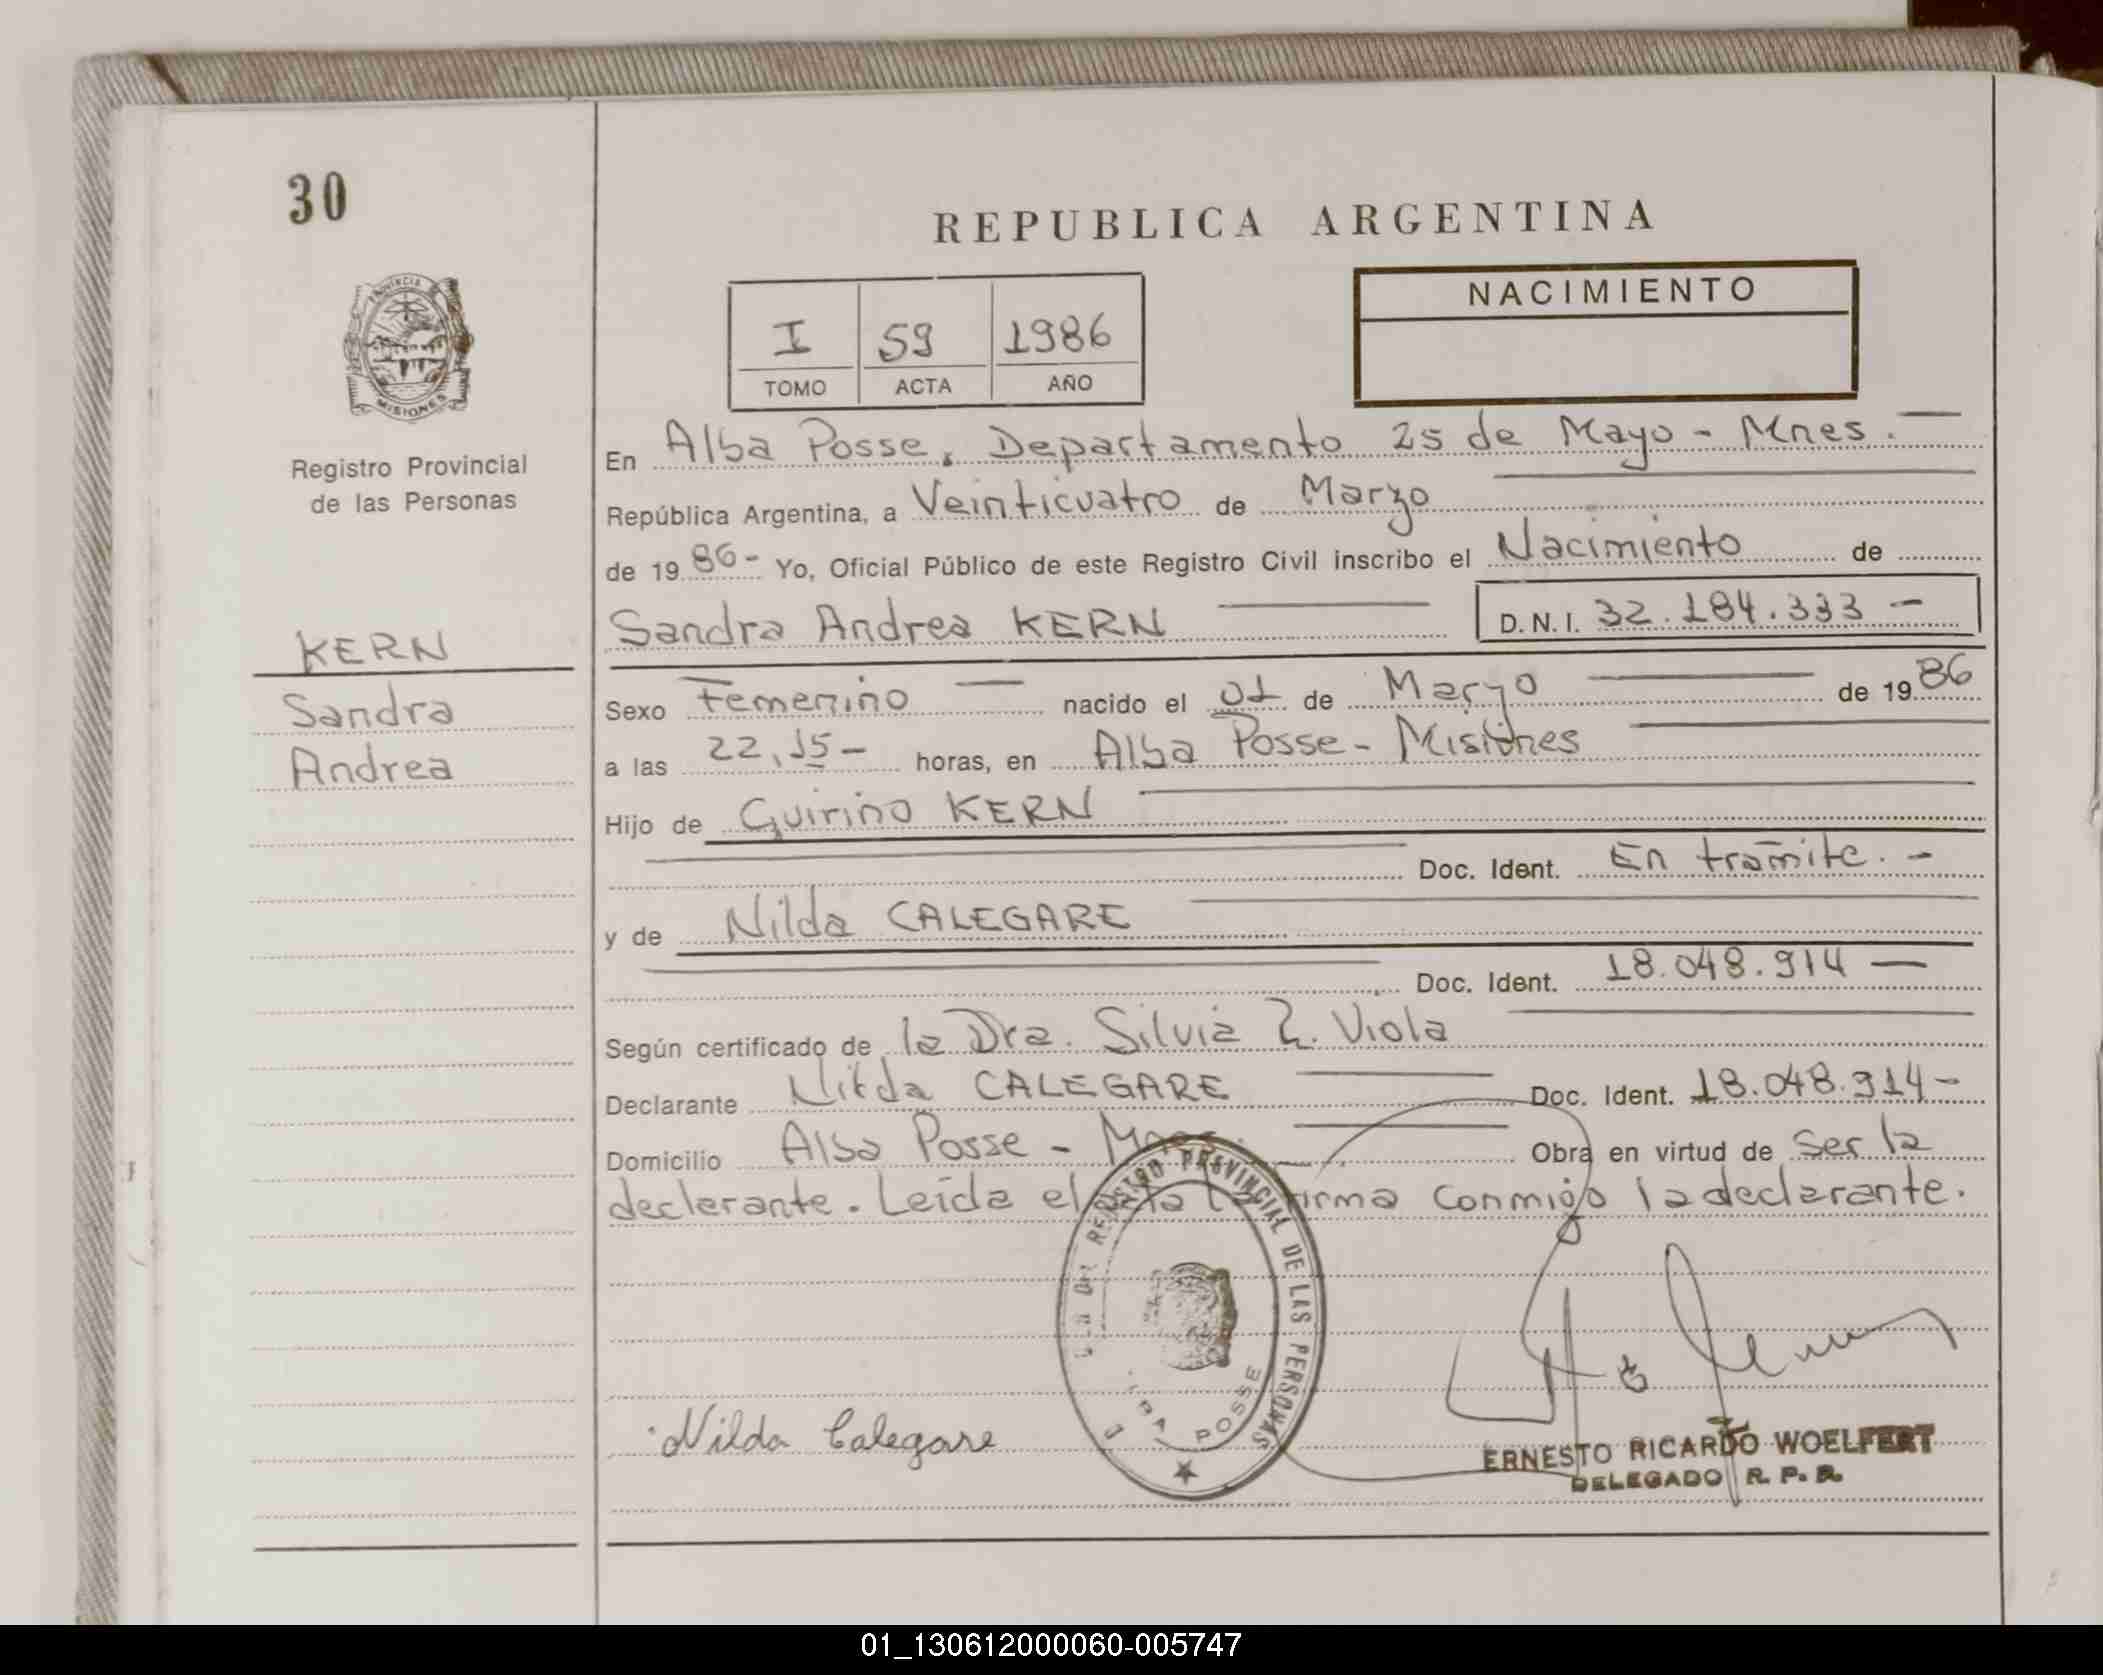 30
REPUBLICA ARGENTINA
PROVINCIA DE
MISIONES
Registro Provincial
de las Personas
I 59 1986
TOMO ACTA AÑO
NACIMIENTO
En Alba Posse, Departamento 25 de Mayo - Mnes.
República Argentina, a Veinticuatro de Marzo
de 1986- Yo, Oficial Público de este Registro Civil inscribo el Nacimiento de
Sandra Andrea KERN D.N.I. 32.184.333 -
KERN
Sandra
Andrea
Sexo Femenino nacido el 01 de Marzo de 1986
a las 22,15- horas, en Alba Posse - Misiones
Hijo de Quirino KERN
Doc. Ident. En trámite. -
y de Nilda CALEGARE
Doc. Ident. 18.048.914 -
Según certificado de la Dra. Silvia Viola
Declarante Nilda CALEGARE Doc. Ident. 18.048.914-
Domicilio Alba Posse - Mnes. Obra en virtud de ser la
declarante. Leída el acta la firma conmigo la declarante.
REGISTRO PROVINCIAL DE LAS PERSONAS
ALBA POSSE
Nilda Calegare
ERNESTO RICARDO WOELFERT
DELEGADO R. P. P.
01_130612000060-005747